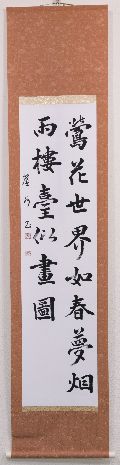 鶯花世界如春夢烟
雨樓臺似畫圖